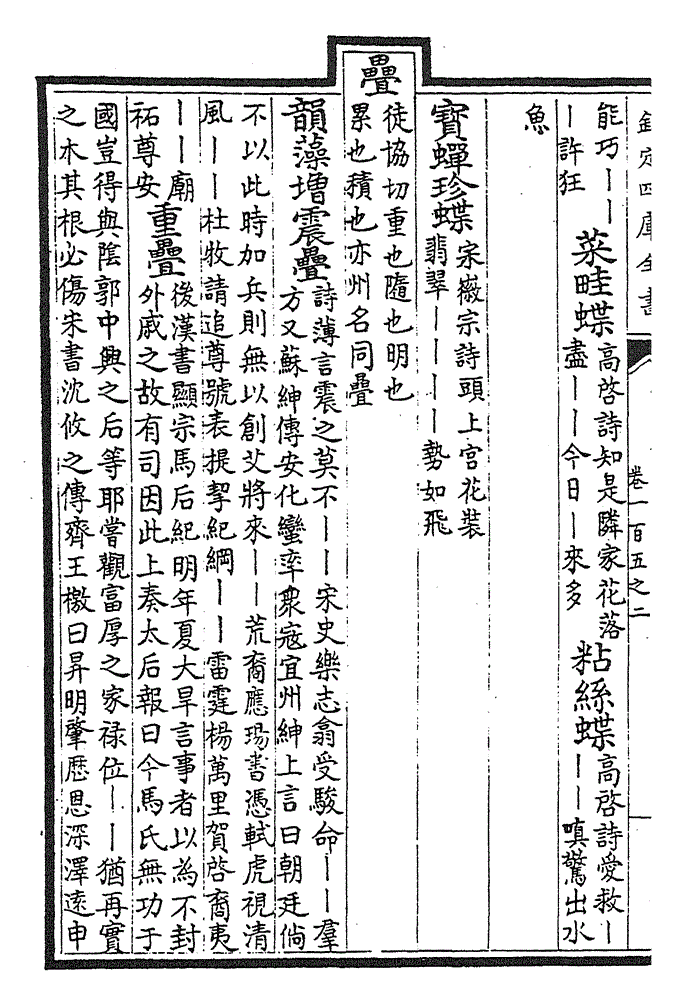 欽定四庫全書
卷一百五之二
能巧丨丨
丨許狂
菜畦蝶
高啓詩知是隣家花落
盡丨丨今日丨來多
粘絲蝶
高啓詩愛救丨
丨丨嗔驚出水
魚
寶蟬珍蝶
宋徽宗詩頭上宮花裝
翡翠丨丨丨丨勢如飛
疊
徒協切重也隨也明也
累也積也亦州名同疊
韻藻增震疊
詩薄言震之莫不丨丨宋史樂志翕受駿命丨丨羣
方又蘇紳傳安化蠻率衆寇宜州紳上言曰朝廷倘
不以此時加兵則無以創艾將來丨丨荒裔應瑒書憑軾虎視清
風丨丨杜牧請追尊號表提挈紀綱丨丨雷霆楊萬里賀啓裔夷
丨丨廟
祏尊安
重疊
後漢書顯宗馬后紀明年夏大旱言事者以為不封
外戚之故有司因此上奏太后報曰今馬氏無功于
國豈得與陰郭中興之后等耶嘗觀富厚之家禄位丨丨猶再實
之木其根必傷宋書沈攸之傳齊王檄曰昇明肇歴恩深澤遠申